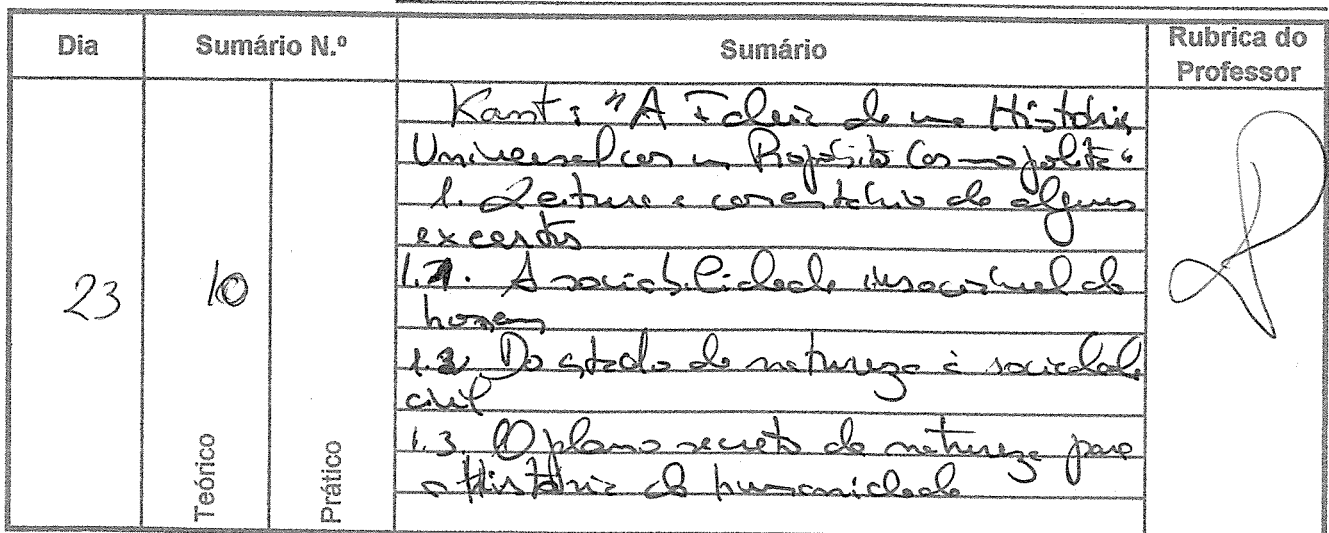 Dia Sumário N.º Sumário Rubrica do Professor
Kant: "A Ideia de uma História
Universal com um Propósito Cosmopolita"
1. Leitura e comentário de alguns
excertos
1.1. A sociabilidade insociável do
homem
1.2. Do estado de natureza à sociedade
civil
1.3. O plano secreto da natureza para
a História da humanidade
23 10
Teórico Prático